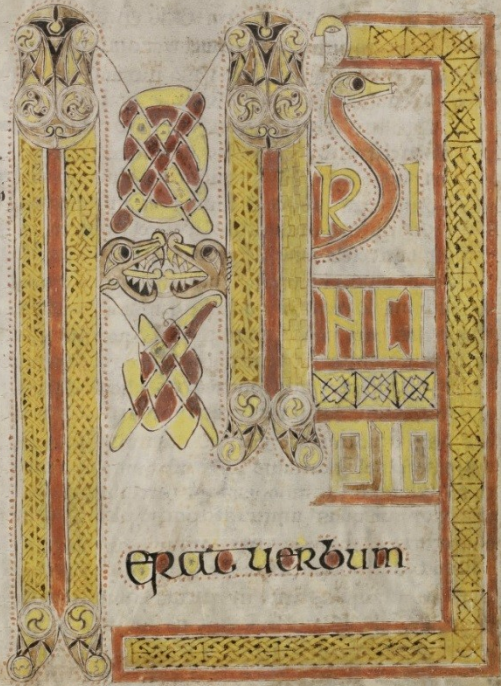 IN P
RI
NCI
PIO
erat uerbum